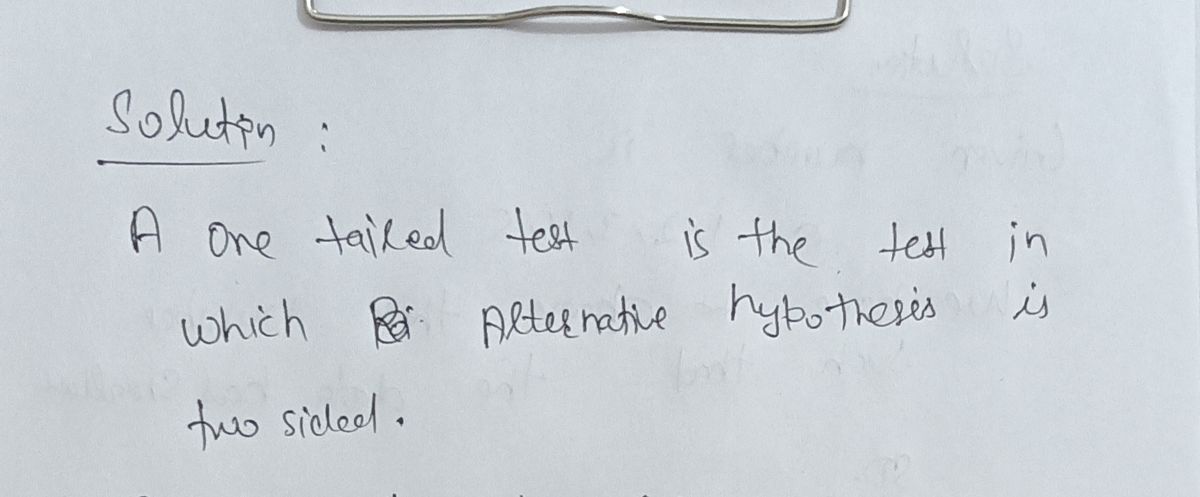 Solution :
A one tailed test is the test in
which Alternative hypothesis is
two sided.